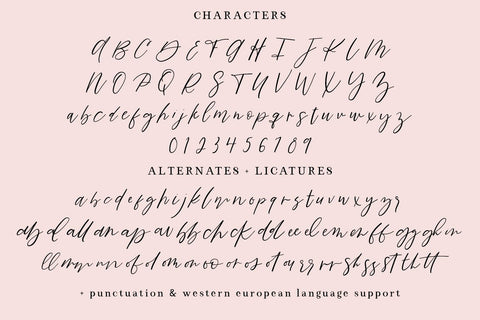 CHARACTERS
A B C D E F G H I J K L M
N O P Q R S T U V W X Y Z
a b c d e f g h i j k l m n o p q r s t u v w x y z
0 1 2 3 4 5 6 7 8 9
ALTERNATES + LICATURES
a b c d e f g h i j k l m n o p q r s t u v w x y z
ab d all an ap av bb ch ck dd ee el em en er ff gg gh
ll mm nn of
+ punctuation & western european language support